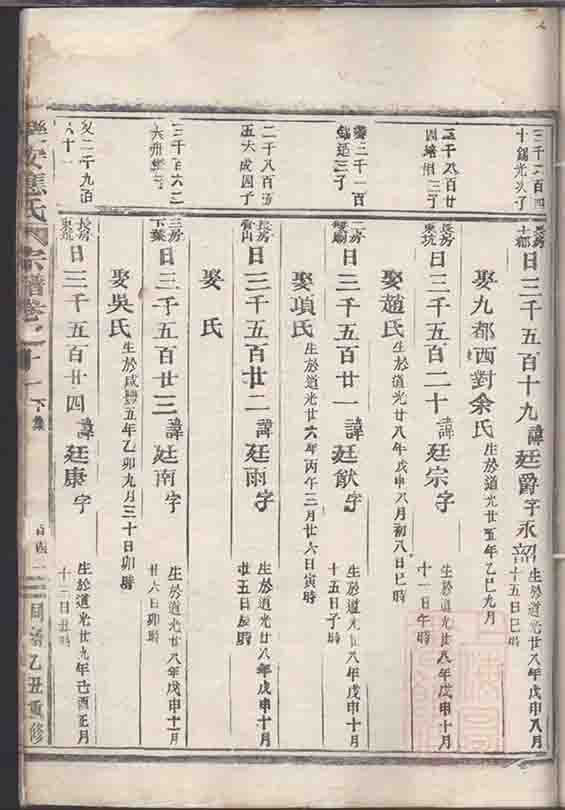 三千六百四
十錫光次子
長房
十都
日三千五百十九諱廷爵字永韶
生於道光廿八年戊申八月
十五日巳時
娶九都西對余氏
生於道光廿五年乙巳九月
三千八百廿
四培相三子
長房
東坑
日三千五百二十諱廷宗字
生於道光廿八年戊申十月
十一日午時
娶趙氏
生於道光廿八年戊申八月初八日巳時
三千一百
三子
二房
日三千五百廿一諱廷猷字
生於道光廿八年戊申十月
十五日子時
娶項氏
生於道光廿六年丙午三月廿六日寅時
二千八百五
五大成四子
長房
日三千五百廿二諱廷雨字
生於道光廿八年戊申十月
廿五日辰時
娶 氏
三千百六二
三房
下葉
日三千五百廿三諱廷南字
生於道光廿八年戊申十一月
廿六日卯時
娶吳氏
生於咸豐五年乙卯九月三十日卯時
二千九百
六十一
長房
東坑
日三千五百廿四諱廷康字
生於道光廿九年己酉正月
十二日丑時
應氏宗譜卷之十一
下集
同治乙丑重修